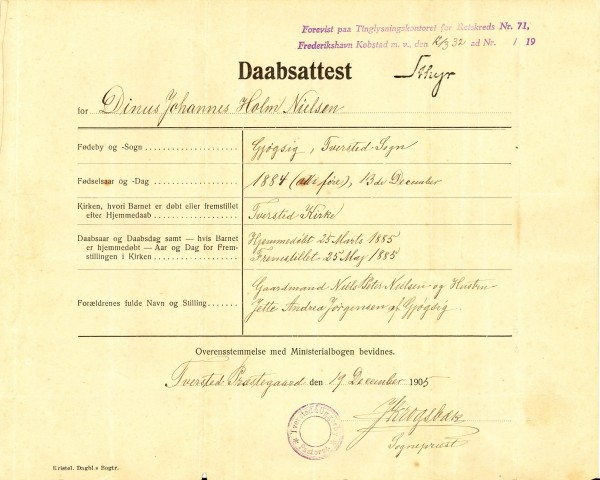 Forevist paa Tinglysningskontoret for Retskreds Nr. 71,
Frederikshavn Købstad m. v., den 12/3 32 ad Nr. / 19
Daabsattest
for Dinus Johannes Holm Nielsen
Fødeby og -Sogn Gjøgsig, Tversted Sogn
Fødselsaar og -Dag 1884 (otti fire), 13de December
Kirken, hvori Barnet er døbt eller fremstillet
efter Hjemmedaab Tversted Kirke
Daabsaar og Daabsdag samt — hvis Barnet Hjemmedøbt 25 Marts 1885
er hjemmedøbt — Aar og Dag for Frem- Fremstillet 25 Maj 1885
stillingen i Kirken
Gaardmand Niels Peter Nielsen og Hustru
Forældrenes fulde Navn og Stilling Jette Andrea Jørgensen af Gjøgsig.
Overensstemmelse med Ministerialbogen bevidnes.
Tversted Præstegaard den 19 December 1905
J Krogsbæk
Sognepræst
Kristel. Dagbl.s Bogtr.